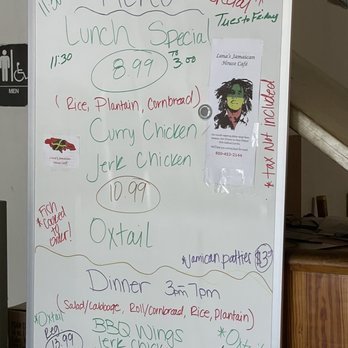 Menu
11:30
Tues to Friday
Lunch Special
11:30
to
3:00
8.99
Lena's Jamaican
House Café
MEN
(Rice, Plantain, Cornbread)
Curry Chicken
Jerk Chicken
* tax Not included
10.99
Oxtail
Fish
* Cooked
to
Order!
*Jamican patties $3.
Dinner 3pm-7pm
(Salad/cabbage, Roll/cornbread, Rice, Plantain)
*Oxtail
BBQ Wings
*Oxt
Reg
13.99
Jerk Chick